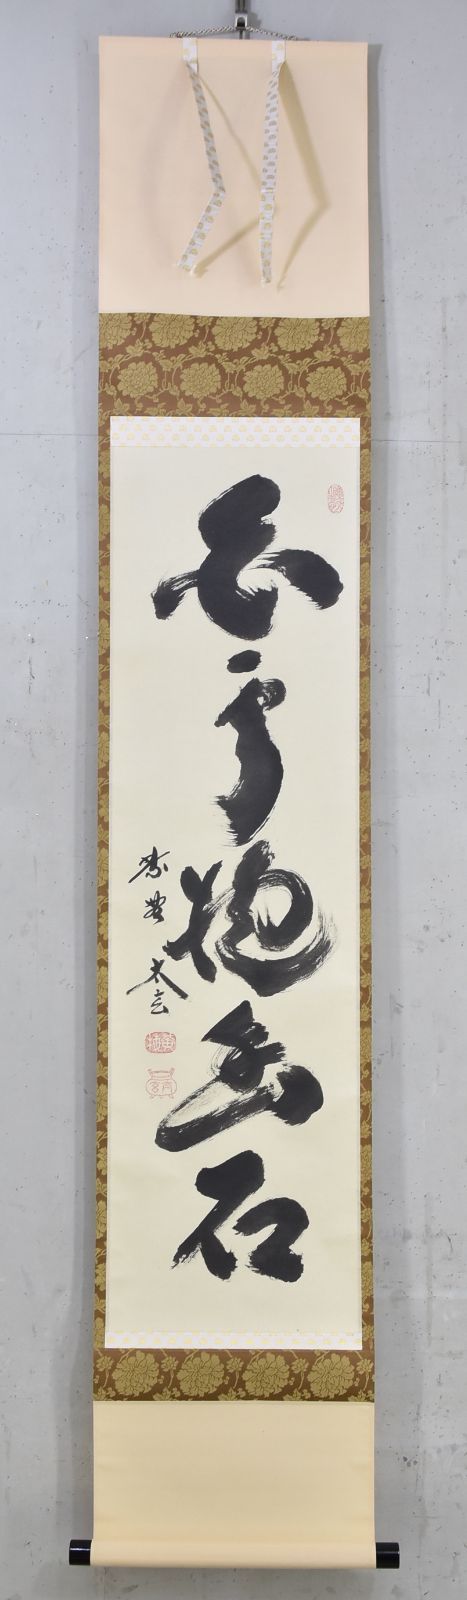 白雲抱幽石
紫野 太玄